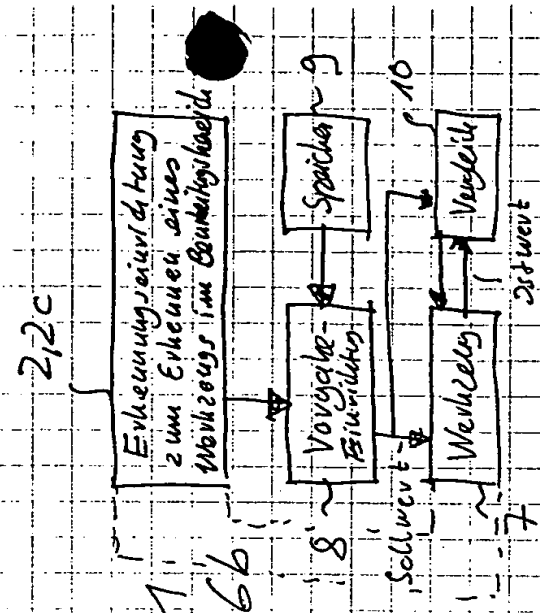 2,2c
Erkennungseinrichtung
zum Erkennen eines
Werkzeugs im Bearbeitungsbereich
1
6b
Speicher
9
Vorgabe-
Einrichtung
8
Sollwert
10
Vergleich
Istwert
Werkzeug
7